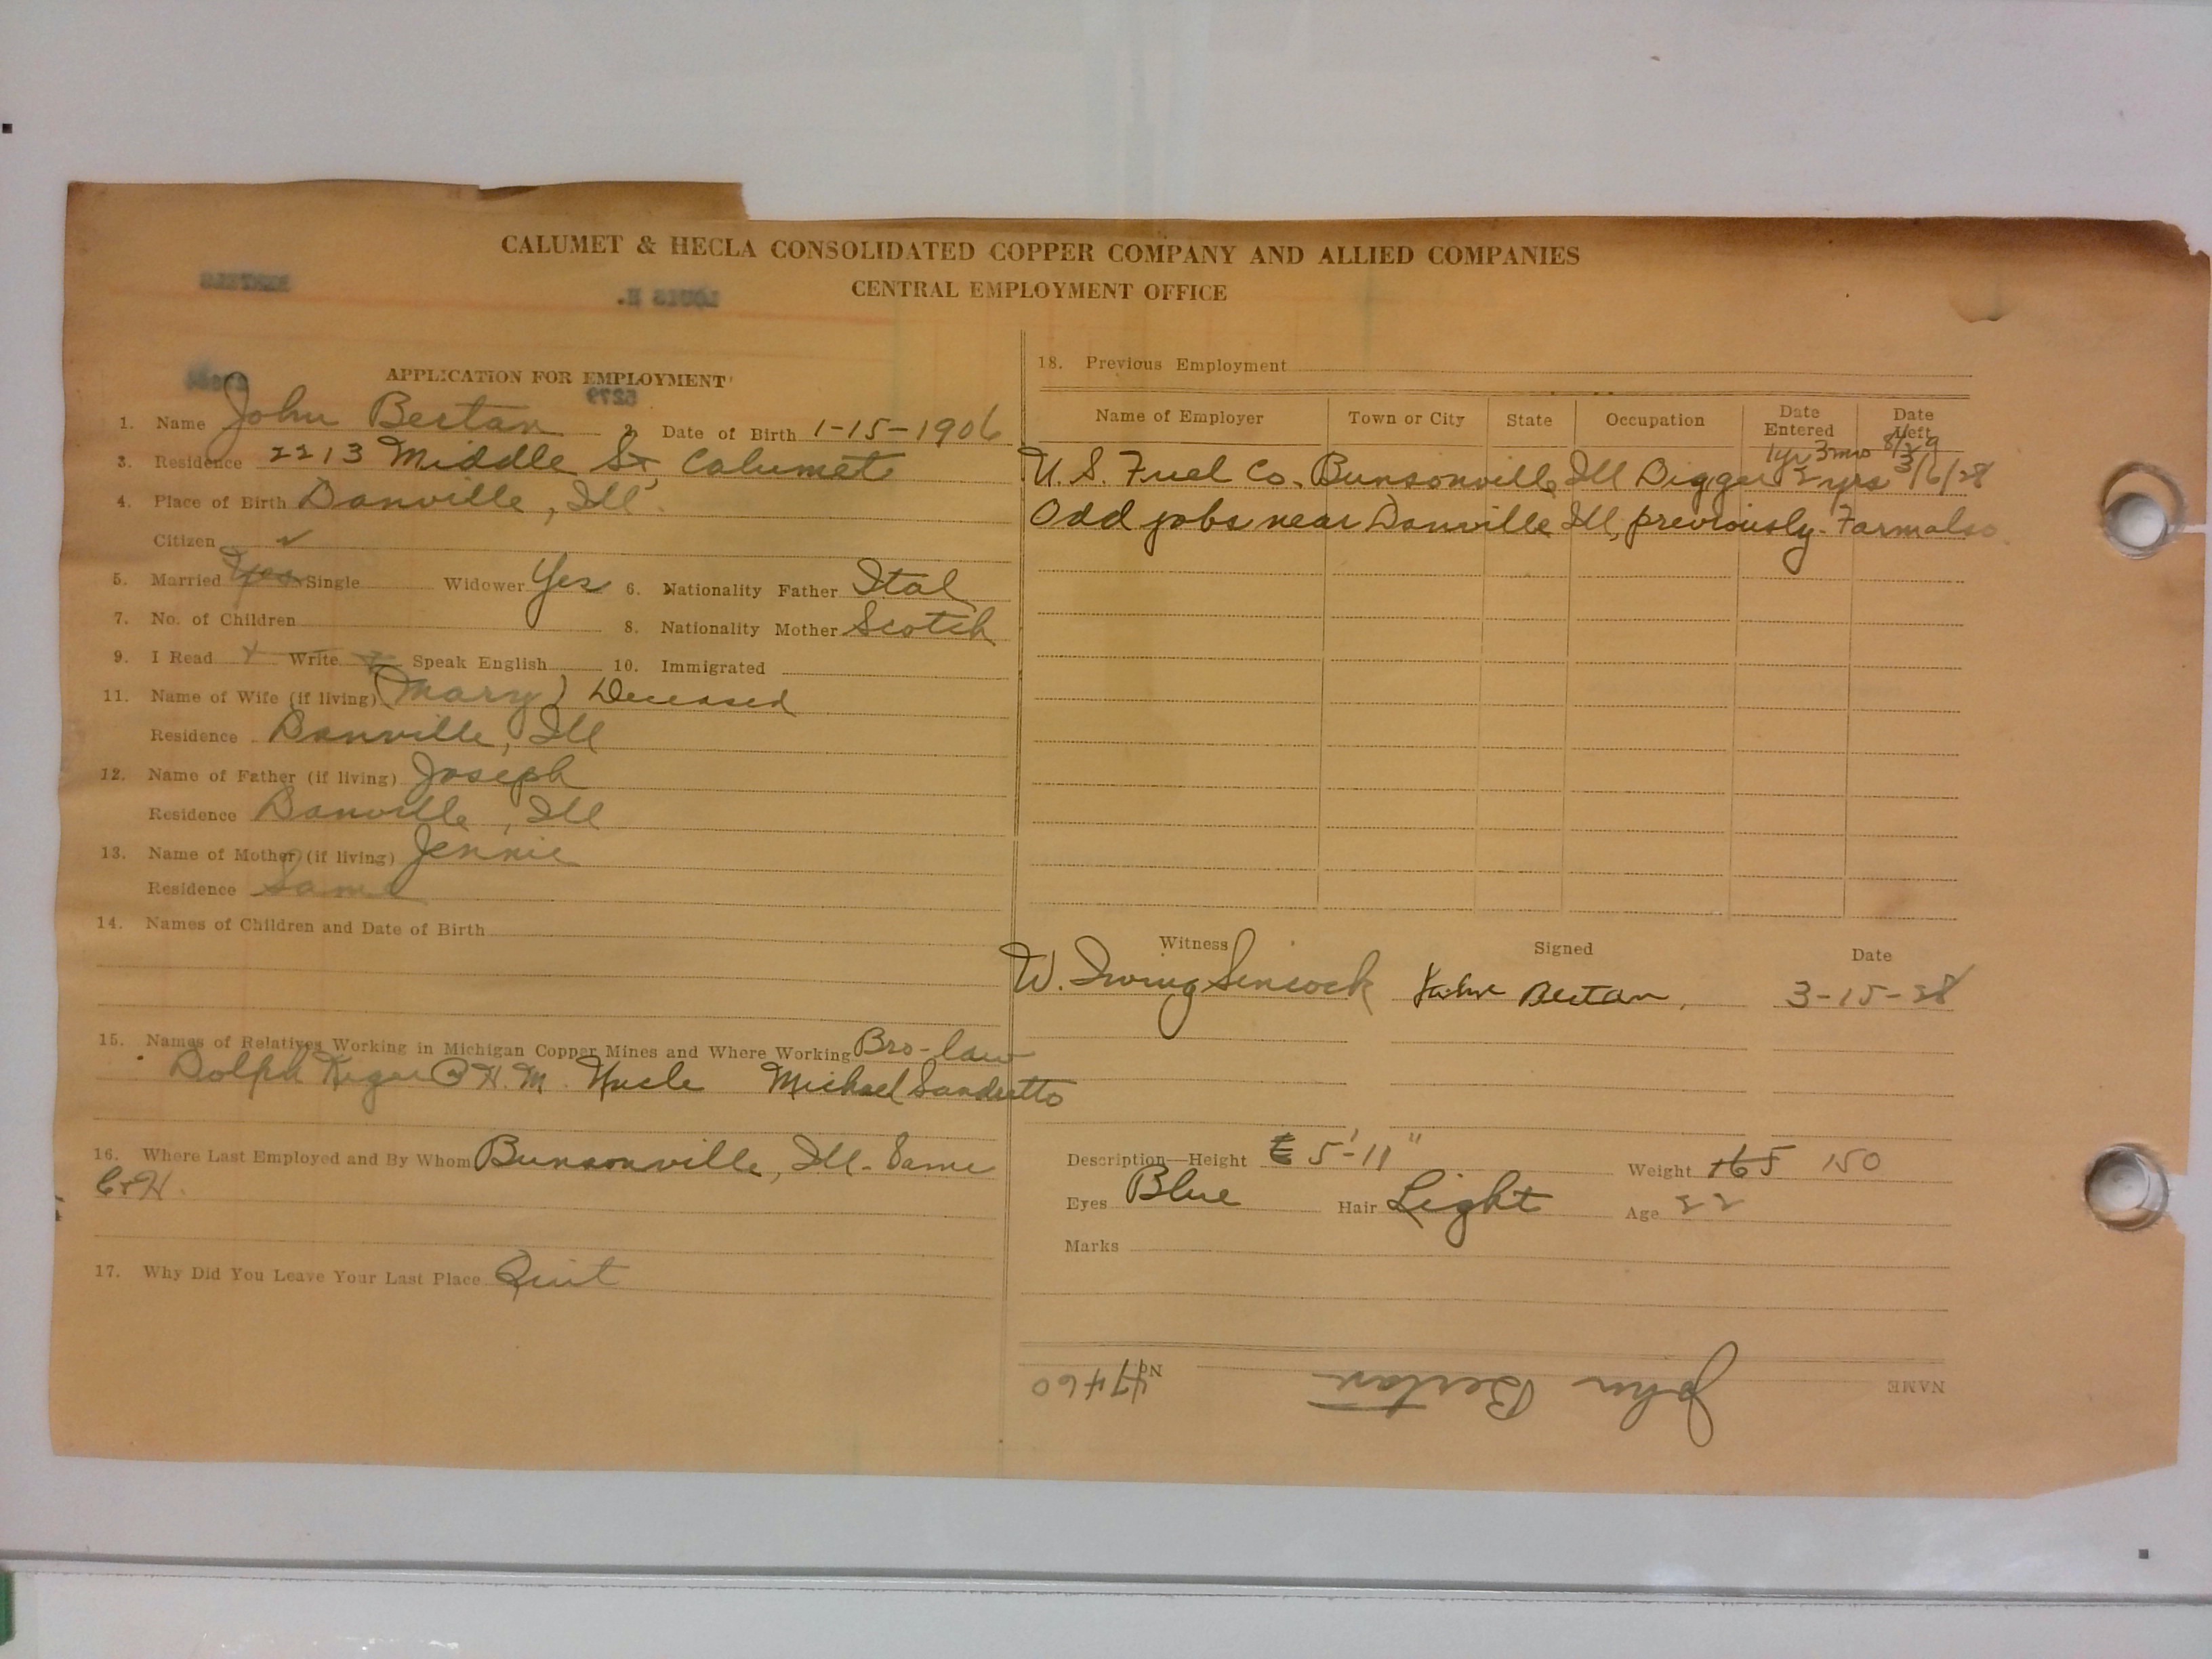 CALUMET & HECLA CONSOLIDATED COPPER COMPANY AND ALLIED COMPANIES
CENTRAL EMPLOYMENT OFFICE
LOUIS E.
APPLICATION FOR EMPLOYMENT
5279
1. Name John Bertan 2. Date of Birth 1-15-1906
3. Residence 2213 Middle St, Calumet
4. Place of Birth Danville, Ill.
Citizen ✓
5. Married Yes Single Widower Yes 6. Nationality Father Ital
7. No. of Children 8. Nationality Mother Scotch
9. I Read x Write x Speak English 10. Immigrated
11. Name of Wife (if living) (Mary) Deceased
Residence Danville, Ill
12. Name of Father (if living) Joseph
Residence Danville, Ill
13. Name of Mother (if living) Jennie
Residence Same
14. Names of Children and Date of Birth
15. Names of Relatives Working in Michigan Copper Mines and Where Working Bro-law
Dolph C.H.M. Uncle Michael Sandretto
16. Where Last Employed and By Whom Bunsonville, Ill. Same
C&H.
17. Why Did You Leave Your Last Place Quit
18. Previous Employment
Name of Employer Town or City State Occupation Date Entered Date Left
1yr 3mo 8/29
U.S. Fuel Co. Bunsonville Ill Digger 2 yrs 3/6/28
Odd jobs near Danville Ill, previously. Farm also
Witness Signed Date
W. Irving Sincock John Bertan, 3-15-28
Description—Height 5'-11" Weight 165 150
Eyes Blue Hair Light Age 22
Marks
NAME John Bertan No. 47460